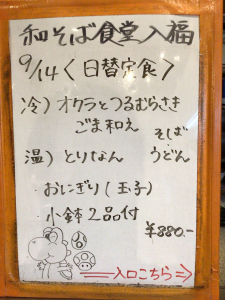 和そば食堂入福
9/14<日替定食>
冷)オクラとつるむらさき
ごま和え
そば
温)とりなん うどん
・おにぎり(玉子)
・小鉢2品付
¥880.-
入口こちら⇒